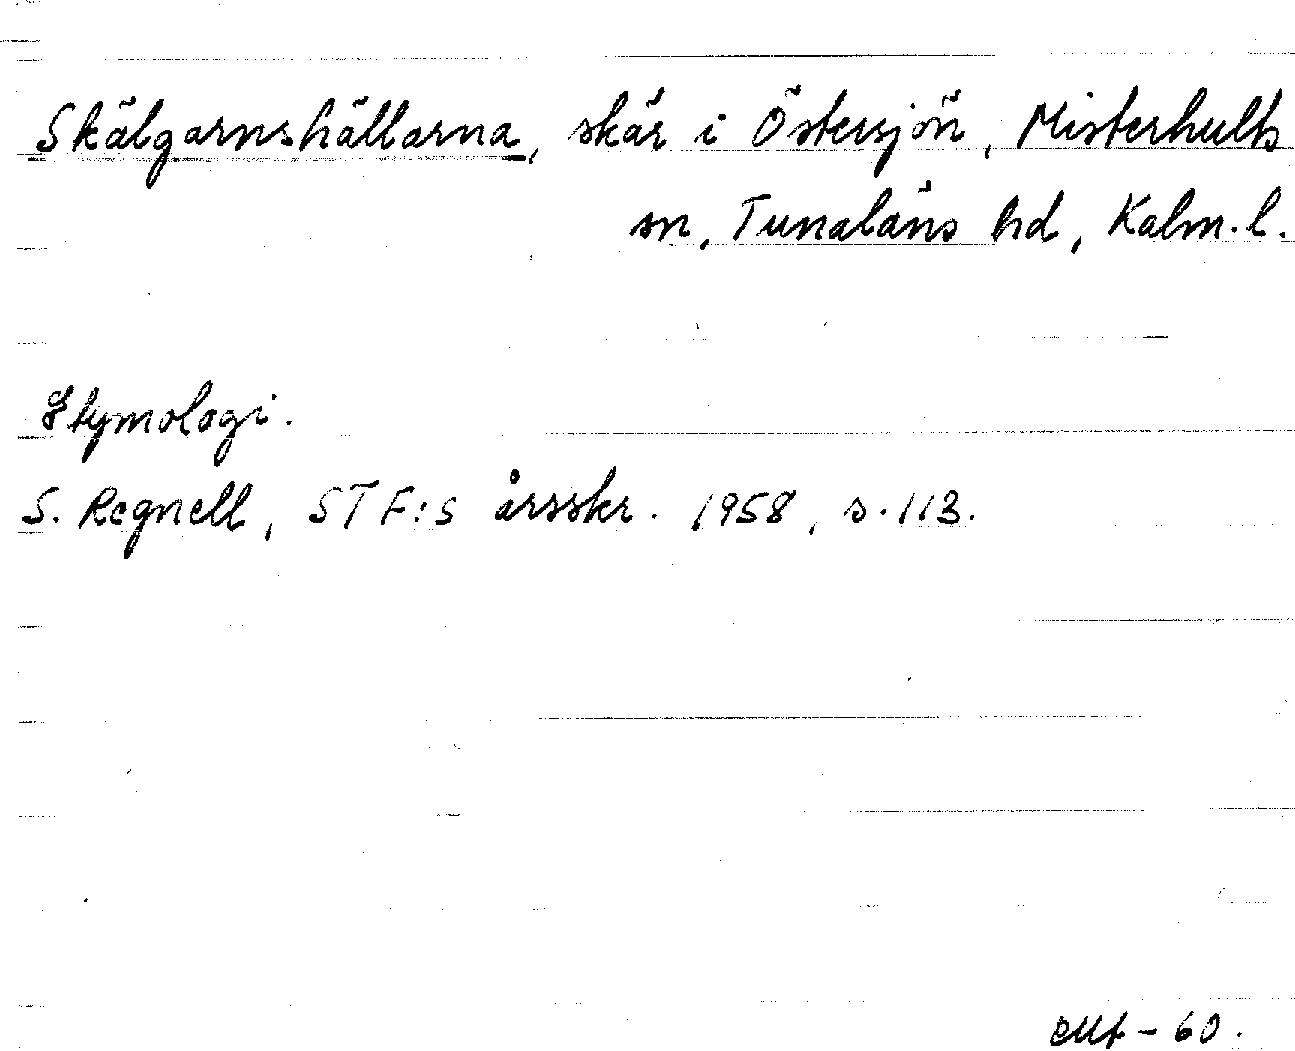 Skälgarnshällarna, skär i Östersjön, Misterhults
sn, Tunaläns hd, Kalm. l.
Etymologi.
S. Regnell, STF:s årsskr. 1958, s. 113.
-60.